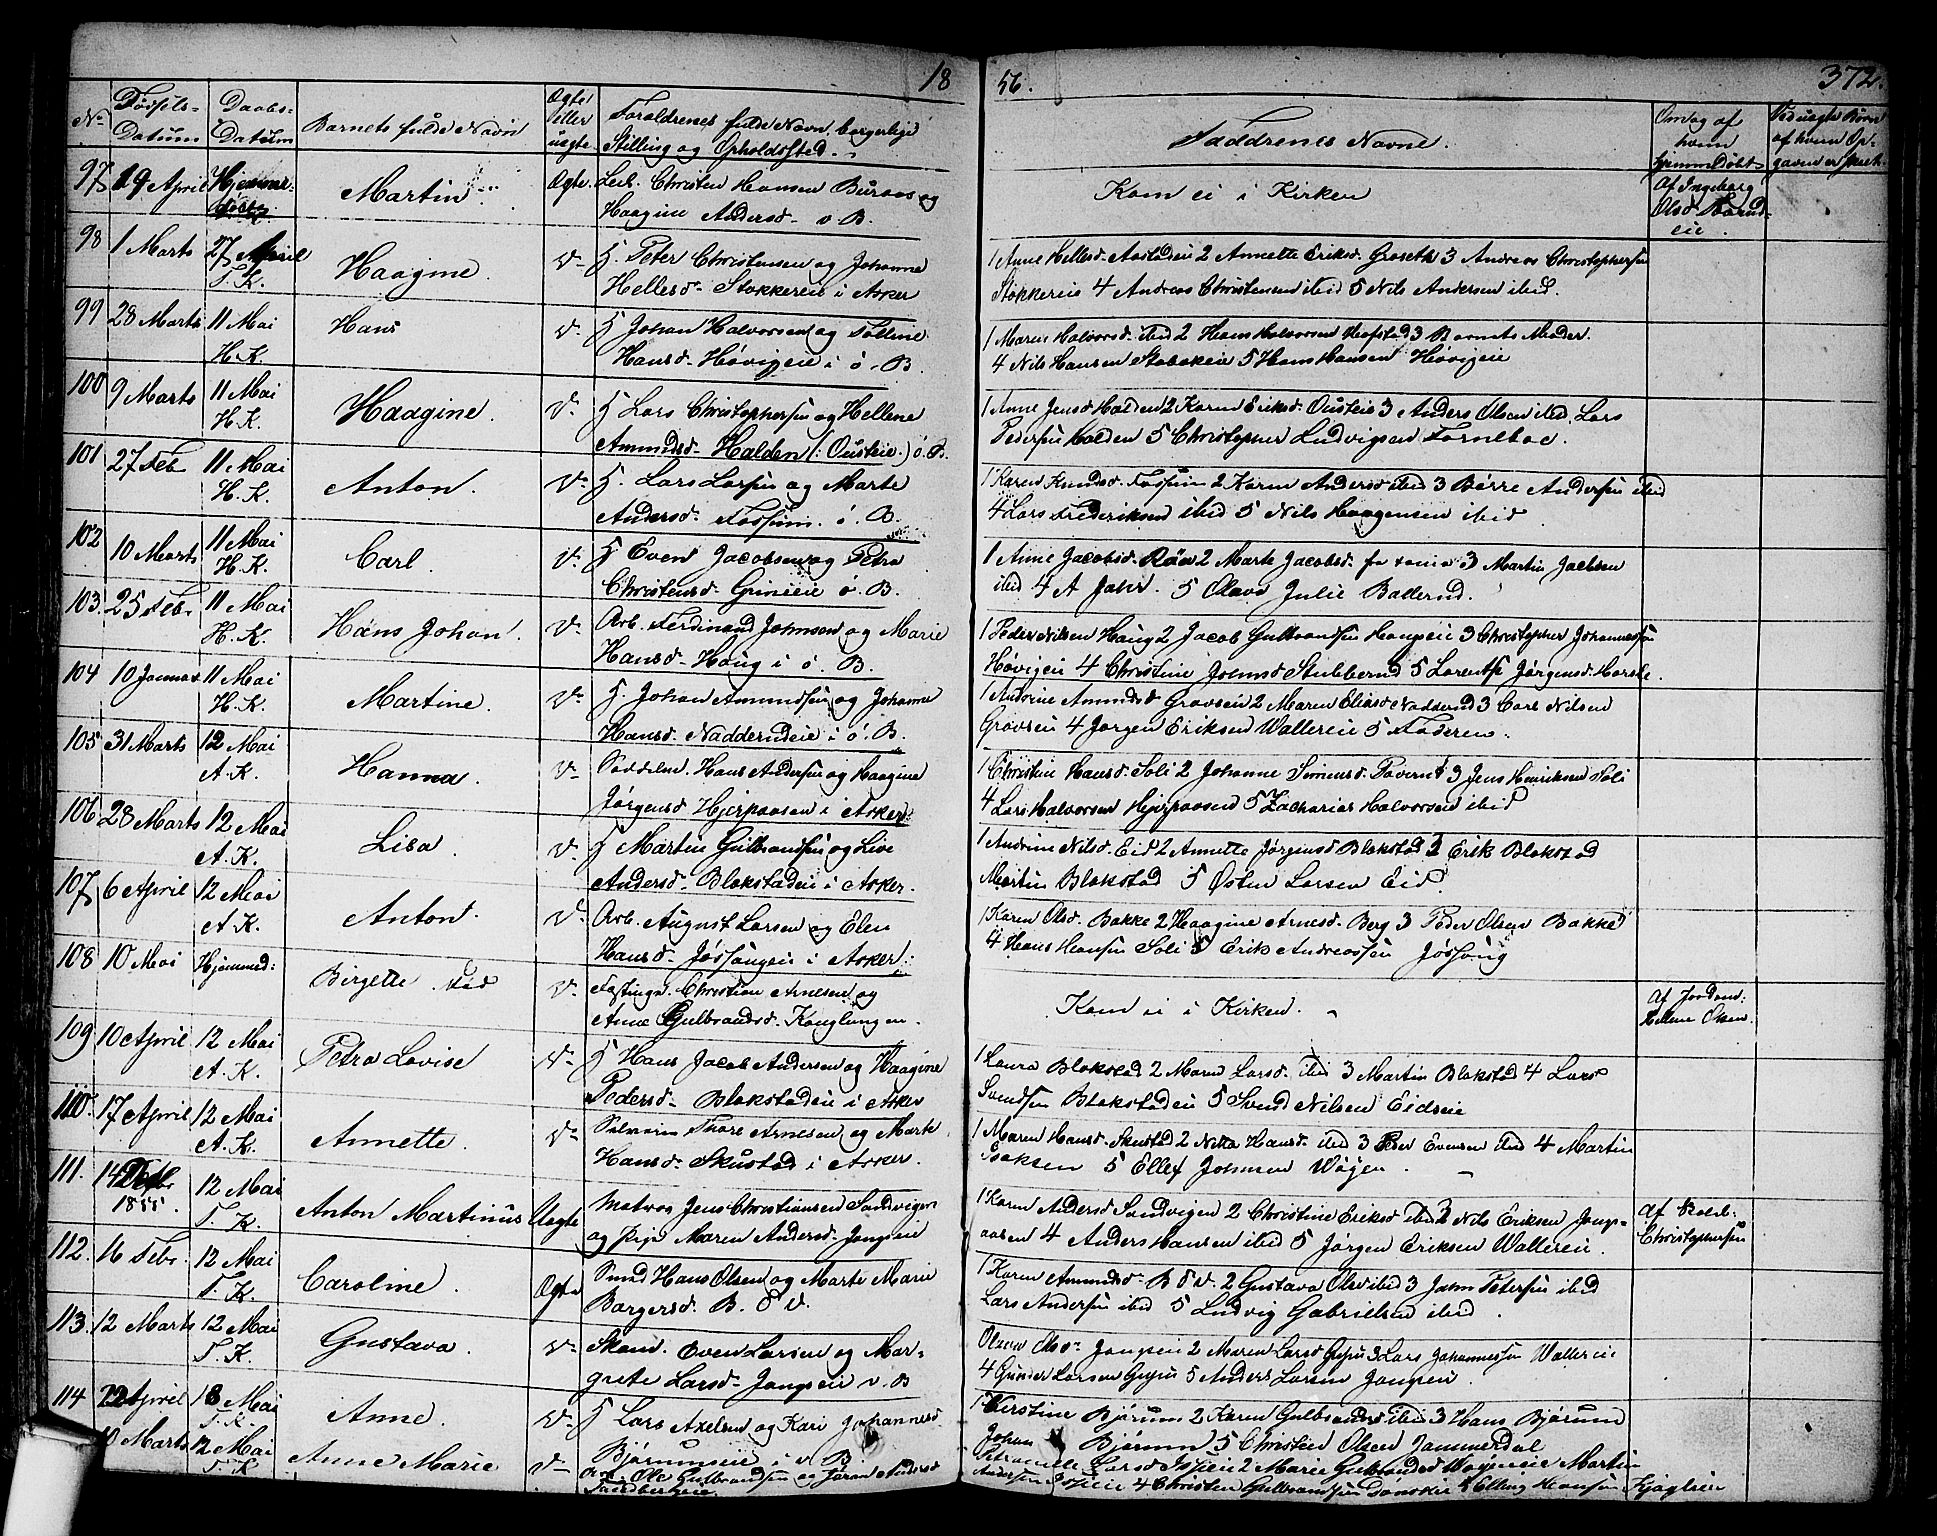 18
56.
372.
No
Fødsels-
Datum
Daabs-
Datum
Barnets fulde Navn
Ægte
eller
uægte.
Forældrenes fulde Navn, borgerlige
Stilling og Opholdssted.
Faddrenes Navne.
Omdag af
hvem
hjemmedøbt
Ved uægte Børn
af hvem Op-
gaven er skeet.
97 19 April Hjemme- Martin Ægte. Christen Hansen Buraas og
Haagine Andersd. v B.
Kom ei i Kirken
Af Ingeborg
Olsd.
eie.
98 1 Marts 27 April Haagine. Do G. Peter Christensen og Johanne
T. K. Hellesd. Stokkereie i Asker
1 Anne Hellesd. 2 Annette Eriksd. Groseth 3 Andreas Christophersen
Stokkereie 4 Andreas Christensen ibid 5 Nils Andersen ibid.
99 28 Marts 11 Mai Hans Do G Johan Halvorsen og
H. K. Hansd. Høvigeie i ø. B.
1 Maren Halvorsd. ibid 2 Hans Halvorsen 3 Barnets Moder.
4 Nils Hansen Stabækeie 5 Hans Hansen Høvigeie
100 9 Marts 11 Mai Haagine. Do G Lars Christophersen og Hellene
H. K. Amundsd. Halden (: Ousteie.) ø. B.
1 Anne Jensd Halden 2 Karen Eriksd. Ousteie 3 Anders Olsen ibid. Lars
Pedersen Halden 5 Christopher Ludvigsen Forneboe.
101 27 Feb 11 Mai Anton. Do G. Lars Larsen og Marte
H. K. Andersd. Fossum. ø. B.
1 Karen Knudsd. Fossum 2 Karen Andersd ibid 3 Børre Andersen ibid
4 Lars Frederiksen ibid 5 Nils Haagensen ibid.
102 10 Marts 11 Mai Carl. Do G Even Jacobsen og Petra
H. K. Christensd. Grinieie ø. B.
1 Anne Jacobsd. Røa 2 Marte Jacobsd. 3 Martin Jacobsen
ibid 4 A Jahr. 5 Olava Julie Ballerud.
103. 25 Febr. 11 Mai Hans Johan. Do Arb. Ferdinand Johnsen og Marie
H. K. Hansd. Haug i ø. B.
1 Peder Nilsen Haug 2 Jacob Gulbrandsen Haugeie 3 Christopher Johannessen
Høvigeie 4 Christine Johnsd Stubberud 5 Lorentse Jørgensd.
104 10 Januar 11 Mai Martine. Do G. Johan Amundsen og Johanne
H. K. Hansd. Nadderudeie i ø. B.
1 Andrine Amundsd Gravseie 2 Maren Eliasd Nadderud 3 Carl Nilsen
Gravseie 4 Jørgen Eriksen Wallereie 5 Faderen.
105 31 Marts 12 Mai Hanna. Do Hans Andersen og Haagine
A. K. Jørgensd Hjerpaasen i Asker
1 Christine Hansd. Soli 2 Johanne Simensd. 3 Jens Henriksen Soli
4 Lars Halvorsen Hjerpaasen 5 Zacharias Halvorsen ibid
106 28 Marts 12 Mai Lisa. Do G Martin Gulbrandsen og Live
A. K. Andersd. Blakstadeie i Asker.
1 Andrine Nilsd. Eid 2 Annette Jørgensd Blakstad 3 Erik Blakstad
Martin Blakstad 5 Østen Larsen Eid.
107 6 April 12 Mai Anton. Do Arb. August Larsen og Elen
A. K. Hansd. Jøssongeie i Asker
1 Karen Olsd. Bakke 2 Haagine Arnesd. Berg 3 Peder Olsen Bakke
4 Hans Hansen Soli 5 Erik Andreassen Jøssong
108 10 Mai Hjemmed: Birgette Do Christian Arnesen og
Anne Gulbrandsd. Konglungen.
Kom ei i Kirken.
Af Jordm:
Hellene Olsen.
109 10 April 12 Mai Petra Lovise Do G Hans Jacob Andersen og Haagine
A. K. Pedersd. Blakstadeie i Asker
1 Laura Blakstad 2 Maren Larsd. ibid 3 Martin Blakstad 4 Lars
Svendsen Blakstadeie 5 Svend Nilsen Eidseie
110. 17 April 12 Mai Annette. Do Thore Arnesen og Marte
A. K. Hansd. Skustad i Asker.
1 Maren Hansd. Skustad 2 Netta Hansd. ibid 3 Even Evensen ibid 4 Martin
Isaksen 5 Ellef Johnsen Wøyen.
111. 14 12 Mai Anton Martinus Uægte Matros Jens Christiansen Sandvigen
1855. T. K. og Pige Maren Andersd. Jongseie
1 Karen Andersd Sandvigen 2 Christine Eriksd ibid 3 Nils Eriksen Jongs-
aasen 4 Anders Hansen ibid 5 Jørgen Eriksen Wallereie.
Af
Christophersen
112. 16 Febr. 12 Mai Caroline. Ægte Smed Hans Olsen og Marte Marie
T. K. Borgersd. B. V.
1 Karen Amundsd. 2 Gustava Olsd ibid 3 John Petersen ibid
Lars Andersen ibid 5 Ludvig Gabrielsen ibid.
113. 12 Marts 12 Mai Gustava. Do Even Larsen og Mar-
T. K. grete Larsd. Jongseie v. B
Olsd. Jongseie 2 Maren Larsd 3 Lars Johannessen Wallereie
4 Gunder Larsen 5 Anders Larsen Jongseie.
114 22 April 18 Mai Anne. Do G Lars Axelsen og Kari Johannesd
T. K. Bjørumseie i v B.
1 Kirstine Bjørum 2 Karen Gulbrandsd ibid 3 Hans Bjørum
Johan Bjørum 5 Christen Olsen Jammerdal
10 Marts 12 Mai Anne Marie Do Arb. Ole Gulbrandsen og Jøran Andersd
T. K. Sandbergeie.
Larsd 2 Marie Gulbrandsd Martin
Andersen 4 Christen Gulbrandsen 5 Elling Hansen